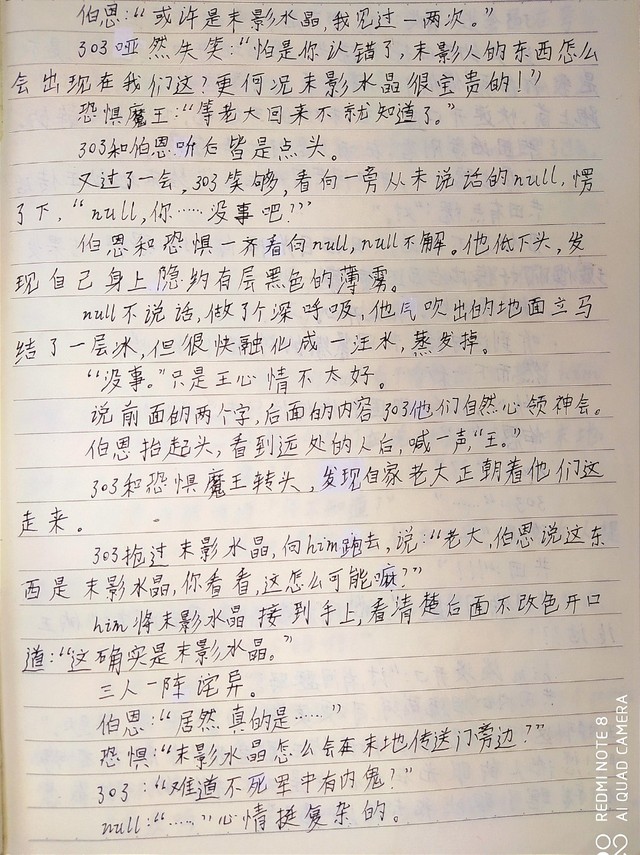 伯恩：“或许是末影水晶，我见过一两次。”
303哑然失笑：“怕是你认错了，末影人的东西怎么
会出现在我们这？更何况末影水晶很宝贵的！”
恐惧魔王：“等老大回来不就知道了。”
303和伯恩听后皆是点头。
又过了一会，303笑够，看向一旁从未说话的null，愣
了下，“null，你……没事吧？”
伯恩和恐惧一齐看向null，null不解。他低下头，发
现自己身上隐约有层黑色的薄雾。
null不说话，做了个深呼吸，他气吹出的地面立马
结了一层冰，但很快融化成一汪水，蒸发掉。
“没事。”只是王心情不太好。
说前面的两个字，后面的内容303他们自然心领神会。
伯恩抬起头，看到远处的人后，喊一声，“王。”
303和恐惧魔王转头，发现自家老大正朝着他们这
走来。
303抢过末影水晶，向him跑去，说：“老大，伯恩说这东
西是末影水晶，你看看，这怎么可能嘛？”
him将末影水晶接到手上，看清楚后面不改色开口
道：“这确实是末影水晶。”
三人一阵诧异。
伯恩：“居然真的是……”
恐惧：“末影水晶怎么会在末地传送门旁边？”
303：“难道不死军中有内鬼？”
null：“……”心情挺复杂的。
REDMI NOTE 8
AI QUAD CAMERA